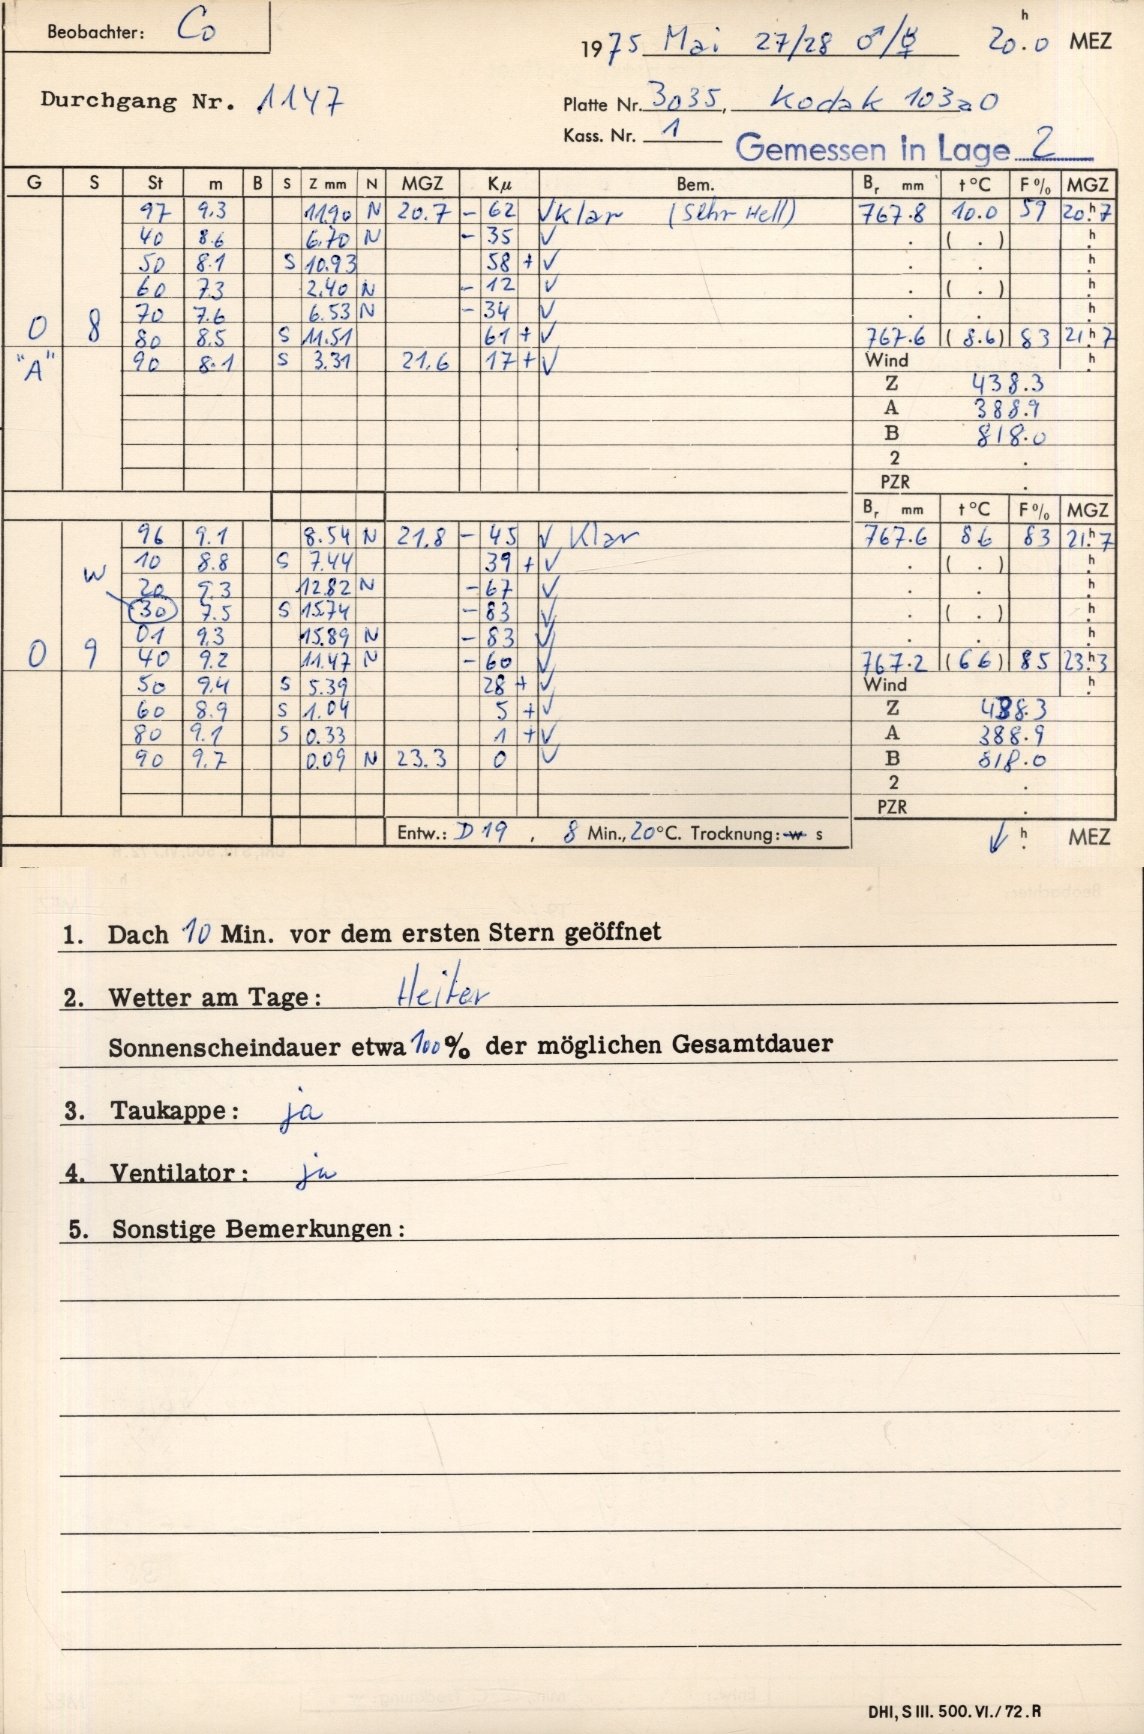 Beobachter: Co
1975 Mai 27/28 ♂/☿ 20.0 h MEZ
Durchgang Nr. 1147
Platte Nr. 3035, Kodak 103aO
Kass. Nr. 1
Gemessen in Lage 2
G S St m B S Z mm N MGZ Kµ Bem. Br mm t °C F % MGZ
97 9.3 11.90 N 20.7 - 62 ✓ Klar (Sehr Hell) 767.8 10.0 59 20.h7
40 8.6 6.70 N - 35 ✓ . ( . ) h
50 8.1 S 10.93 58 + ✓ . . h
60 7.3 2.40 N - 12 ✓ . ( . ) h
70 7.6 6.53 N - 34 ✓ . . h
0 8 80 8.5 S 11.51 61 + ✓ 767.6 (8.6) 83 21.h7
"A" 90 8.1 S 3.31 21.6 17 + ✓ Wind h
Z 438.3
A 388.9
B 818.0
2 .
PZR .
Br mm t °C F % MGZ
96 9.1 8.54 N 21.8 - 45 ✓ Klar 767.6 8.6 83 21.h7
10 8.8 S 7.44 39 + ✓ . ( . ) h
W 20 9.3 12.82 N - 67 ✓ . . h
30 7.5 S 15.74 - 83 ✓ . ( . ) h
01 9.3 15.89 N - 83 ✓ . . h
0 9 40 9.2 11.47 N - 60 ✓ 767.2 (6.6) 85 23.h3
50 9.4 S 5.39 28 + ✓ Wind h
60 8.9 S 1.04 5 + ✓ Z 438.3
80 9.1 S 0.33 1 + ✓ A 388.9
90 9.7 0.09 N 23.3 0 ✓ B 818.0
2 .
PZR .
Entw.: D 19 , 8 Min., 20 °C. Trocknung: w s h MEZ
1. Dach 10 Min. vor dem ersten Stern geöffnet
2. Wetter am Tage: Heiter
Sonnenscheindauer etwa 100 % der möglichen Gesamtdauer
3. Taukappe: ja
4. Ventilator: ja
5. Sonstige Bemerkungen:
DHI, S III. 500. VI./72. R